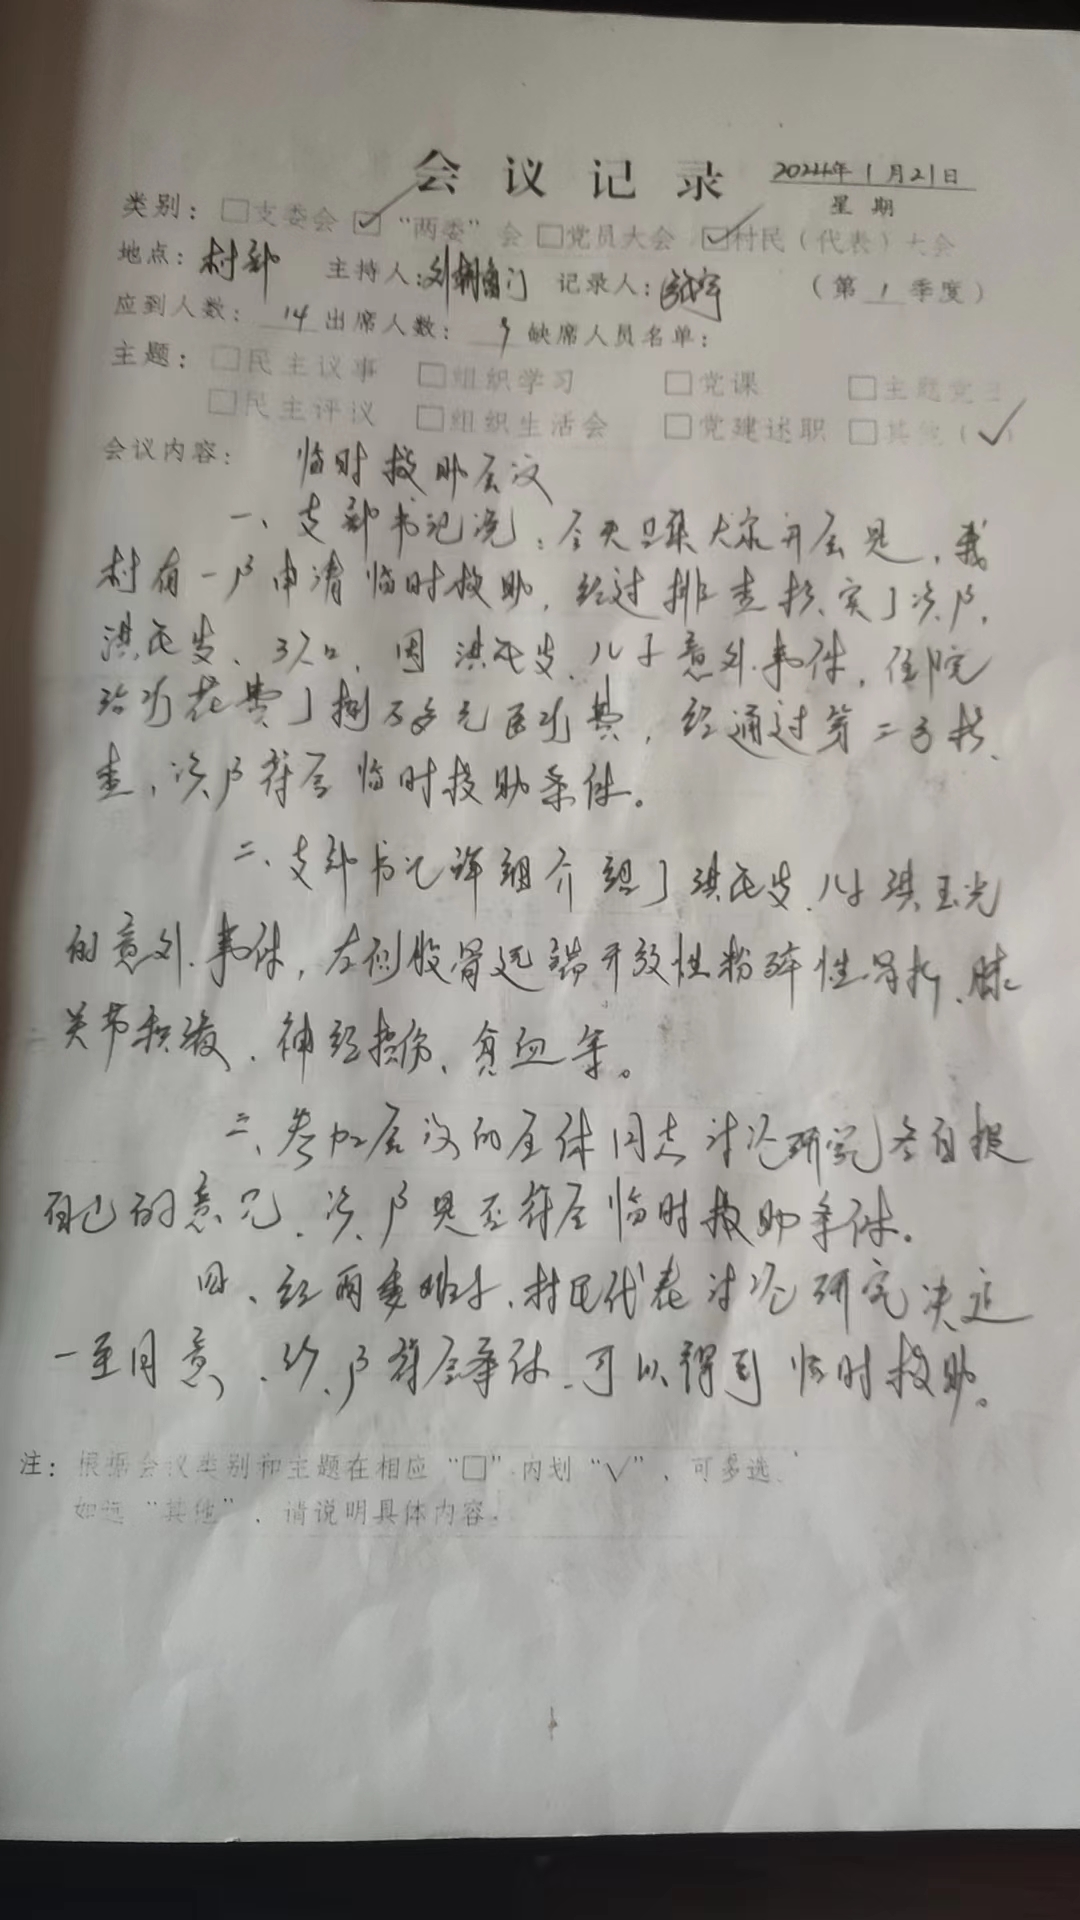 会议记录 2024年1月21日
星期
类别：□支委会 ☑“两委”会 □党员大会 ☑村民（代表）大会
地点：村部 主持人：刘 记录人： （第1季度）
应到人数：14 出席人数：9 缺席人员名单：
主题：□民主议事 □组织学习 □党课 □主题党日
□民主评议 □组织生活会 □党建述职 □其他（√）
会议内容： 临时救助会议
一、支部书记说：今天召集大家开会是，我
村有一户申请临时救助，经过排查核实了该户，
洪 、3人口，因洪 儿子意外事件，住院
治疗花费了捌万多元医疗费，经通过第二方核
查，该户符合临时救助条件。
二、支部书记详细介绍了洪 儿子洪玉光
的意外事件，左侧股骨远端开放性粉碎性骨折、膝
关节积液、神经损伤、贫血等。
三、参加会议的全体同志讨论研究各自提
自己的意见，该户是否符合临时救助条件。
四、经两委班子、村民代表讨论研究决定
一至同意，该户符合条件，可以得到临时救助。
注：根据会议类别和主题在相应“□”内划“√”，可多选，
如选“其他”，请说明具体内容。